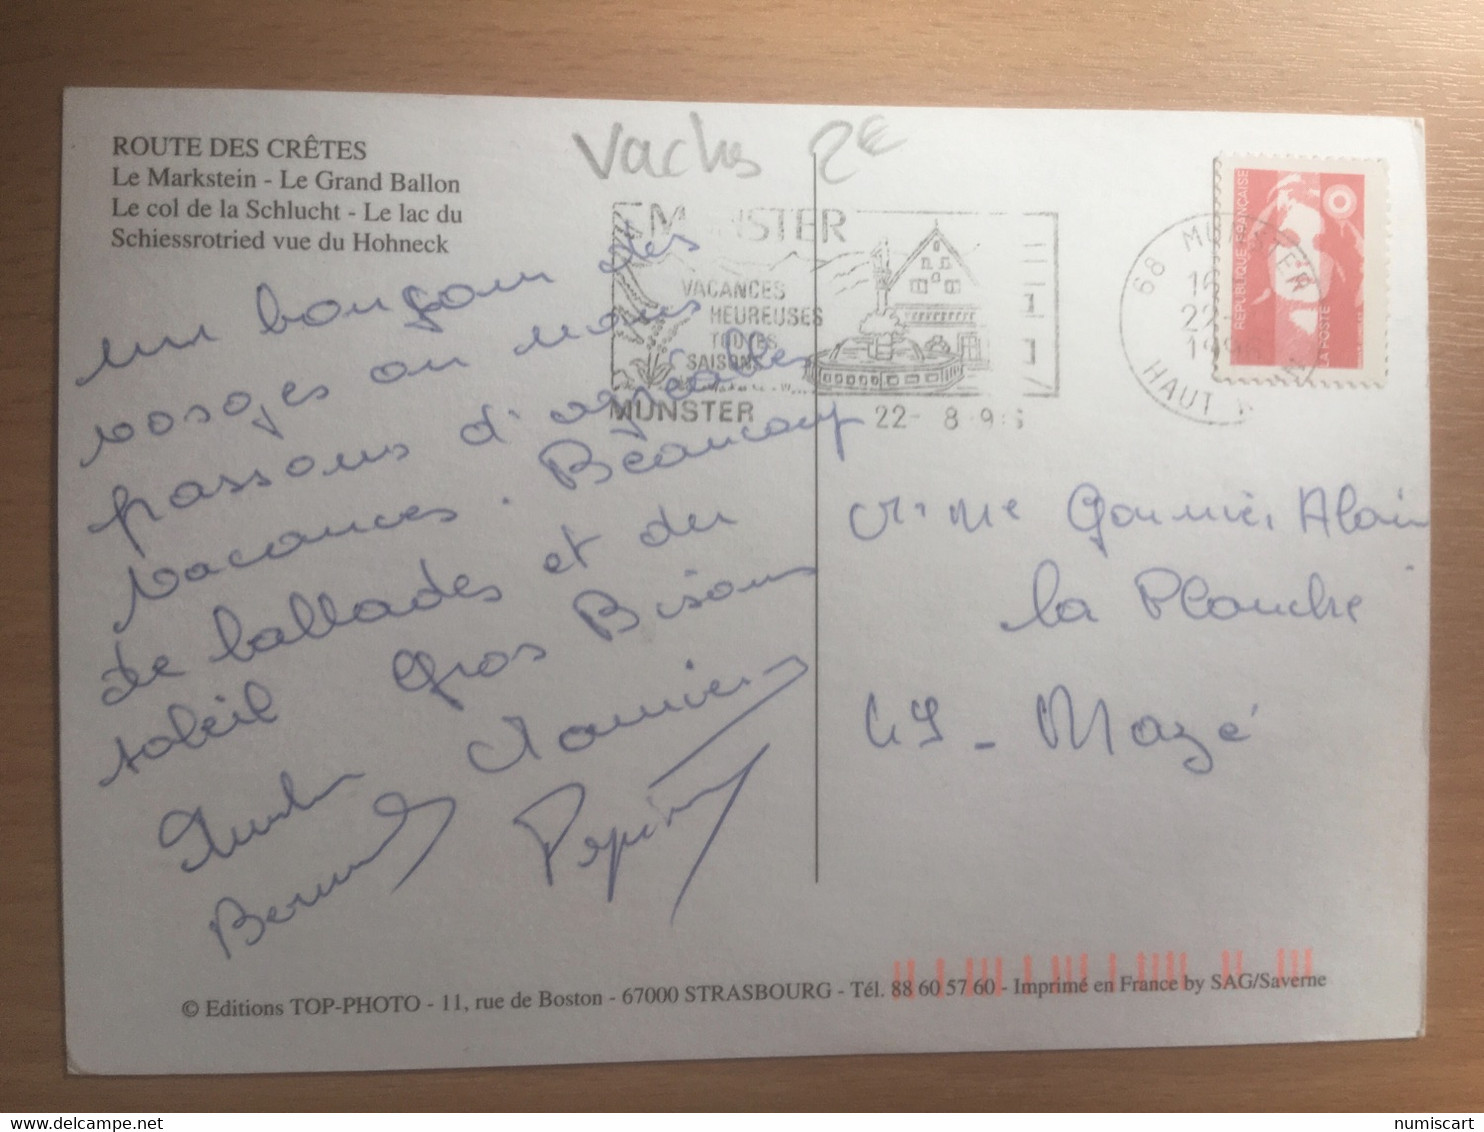 ROUTE DES CRÊTES
Le Markstein - Le Grand Ballon
Le col de la Schlucht - Le lac du
Schiessrotried vue du Hohneck
Vaches 2€
MUNSTER
VACANCES
HEUREUSES
TOUTES
SAISONS
MUNSTER 22- 8.96
68 MUNSTER
16
22-
1996
HAUT
REPUBLIQUE FRANCAISE
LA POSTE
un bonjour des
vosges ou nous
passons d'agréables
vacances. Beaucoup
de ballades et du
soleil Gros Bisous
Bernard
Mr Me Alain
la Planche
49 - Mazé
© Editions TOP-PHOTO - 11, rue de Boston - 67000 STRASBOURG - Tél. 88 60 57 60 - Imprimé en France by SAG/Saverne
numiscart
delcampe.net